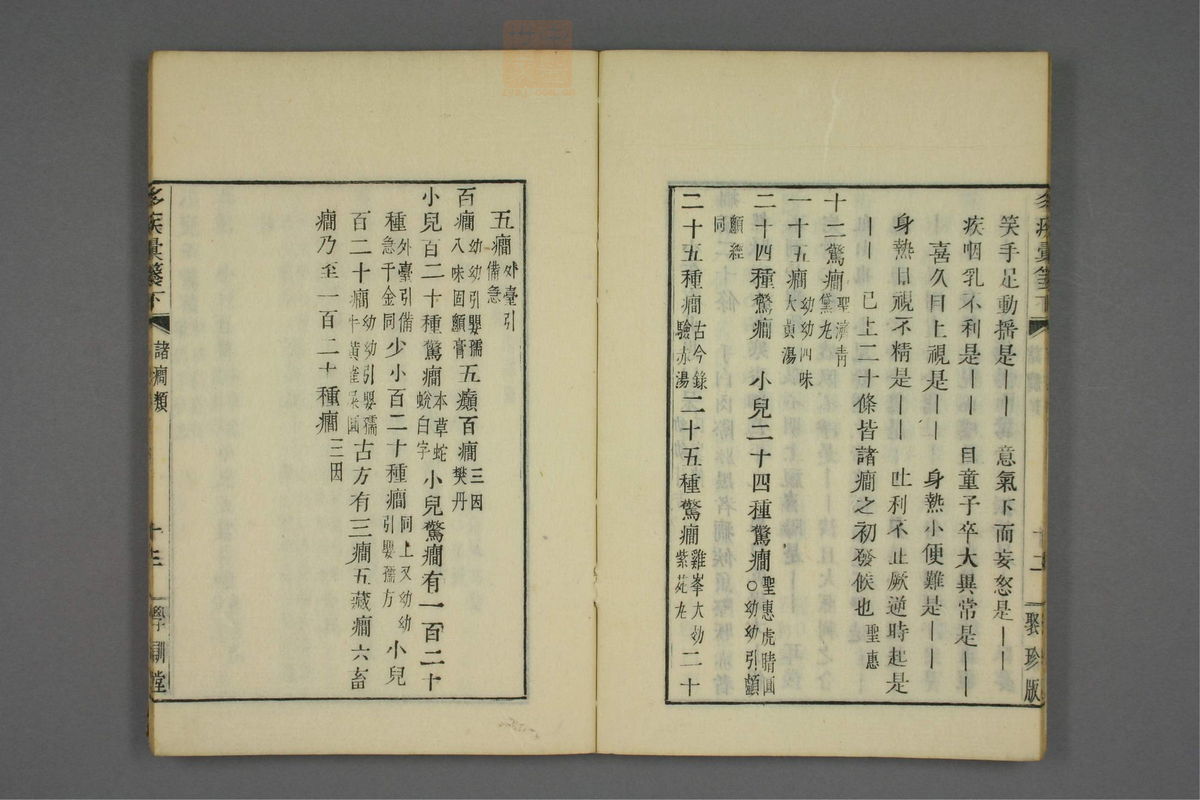 笑手足動揺是｜｜意氣下而妄怒是｜｜
疾咽乳不利是｜｜目童子卒大異常是｜｜
喜久目上視是｜｜身熱小便難是｜｜
身熱目視不精是｜｜吐利不止厥逆時起是
｜｜已上二十條皆諸癇之初發候也聖惠
十三驚癇聖濟青黛丸
一十五癇幼幼四味大黃湯
二十四種驚癇小兒二十四種驚癇聖惠虎睛圓○幼幼引顱顖經同
二十五種癇古今錄驗赤湯二十五種驚癇雞峯大幼紫菀丸二十
彙箋下
十二
聚珍版
五癇外臺引備急
百癇幼幼引嬰孺八味固顱膏五癲百癇三因樊丹
小兒百二十種驚癇本草蛇蛻白字小兒驚癇有一百二十
種外臺引備急千金同少小百二十種癇同上又幼幼引嬰孺方小兒
百二十癇幼幼引嬰孺牛黃雀屎圓古方有三癇五藏癇六畜
癇乃至一百二十種癇三因
疾彙箋下
諸癇類
十三
學訓堂